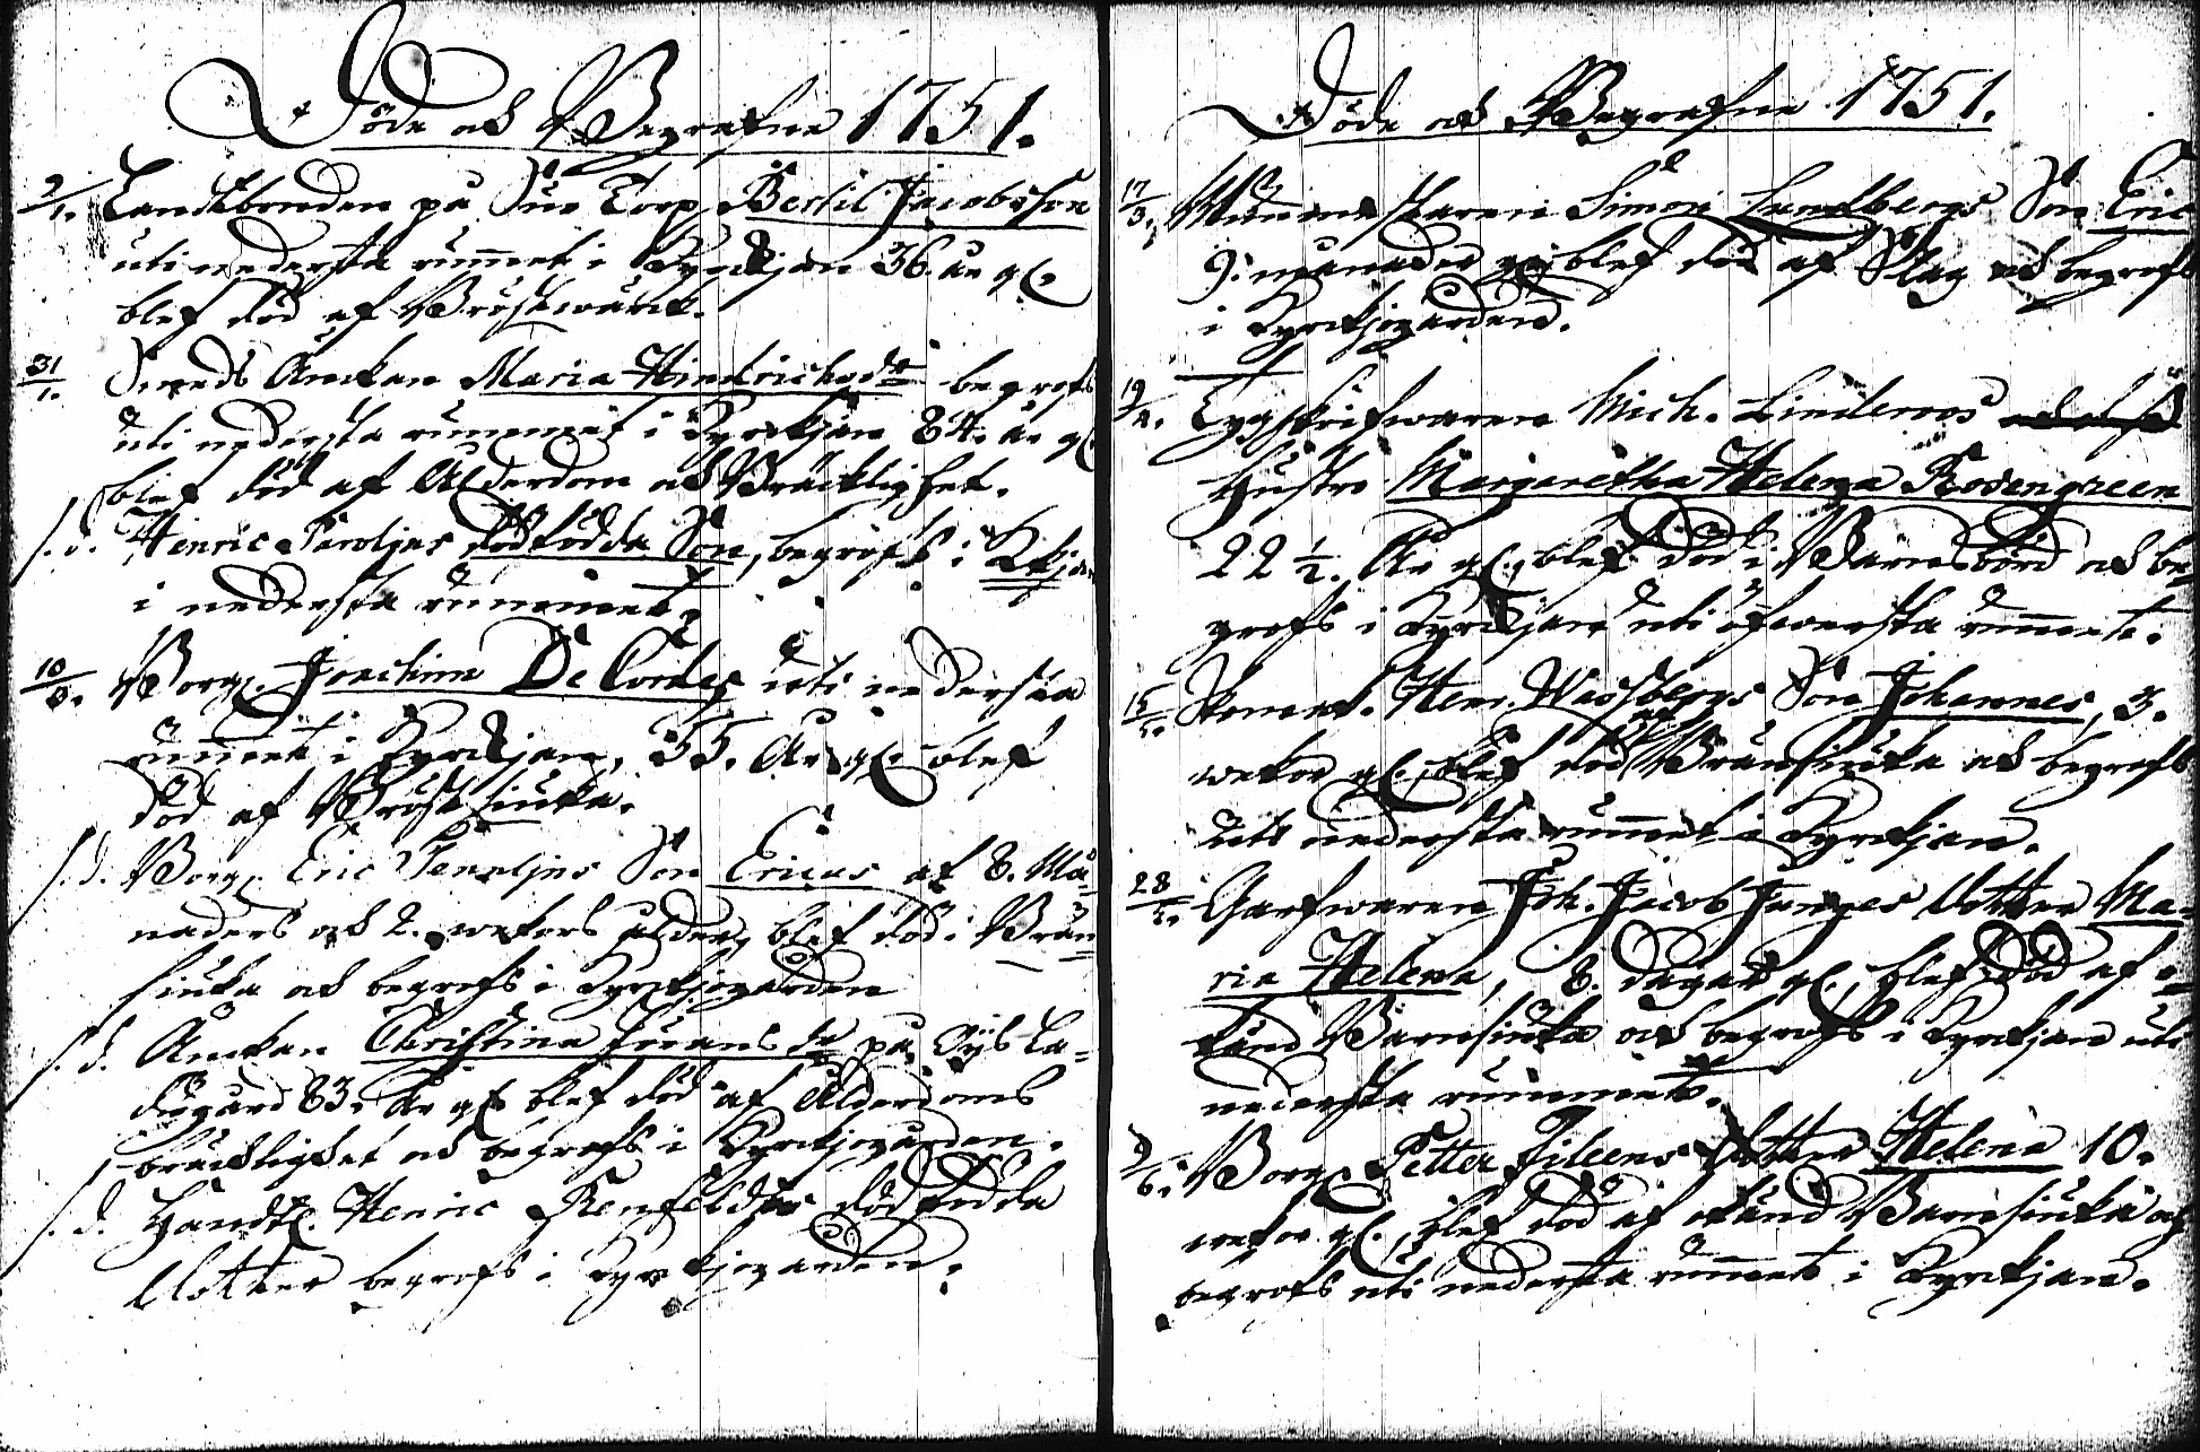 Döde och Begrafne 1751.
2/1. Landtbonden på Sue Torp Bertil Jacobsson
uti nedersta rummet i Kyrckjan 36 år gl.
blef död af Bröstwärck.
31/1. Smeds Änckan Maria Hindrichsdr begrofs
uti nedersta rummet i Kyrckjan 84. år gl.
blef död af Ålderdom och Bräcklighet.
s. d. Henric dödfödda Son, begrofs i Kkjan
i nedersta rummet.
10/3. Borg. Jochim De Cordes uti nedersta
rummet i Kyrckjan, 55. År gl. blef
död af Bröstsiuka.
s. d. Borg. Eric Son Ericus af 8. Må-
naders och 2. wekors ålder, blef död i Brån-
siuka och begrofs i Kyrckjogården
s. d. Änckan Christina Jöransdr på La-
degård 83. År gl. blef död af Ålderdoms
bräcklighet och begrofs i Kyrckjogården.
s. d. Handl. Henric Renfeldts dödfödda
Dotter begrofs i Kyrckjogården.
Döde och Begrafne 1751.
17/3. Simon Lundbergs Son Eric
9. månader gl. blef död af Slag och begrofs
i Kyrckjogården.
19/4. Tygskrifwaren Mich. Linderoos
Hustro Margaretha Helena Rosengreen
22 1/2. År gl., blef död i Barnsbörd och be-
grofs i Kyrckjan uti öfwersta rummet.
15/5. Hen. Wassbergs Son Johannes, 3.
wekor gl., blef död af Brånsiuka och begrofs
uti nedersta rummet i Kyrckjan.
28/5. Garfwaren Joh. Jacob Junges Dotter Ma-
ria Helena, 8. dagar gl., blef död af o-
känd Barnsiuka och begrofs i Kyrckjan uti
nedersta rummet.
2/6. Borg. Petter Dotter Helena 10.
wekor gl., blef död af okänd Barnsiuka och
begrofs uti nedersta rummet i Kyrckjan.